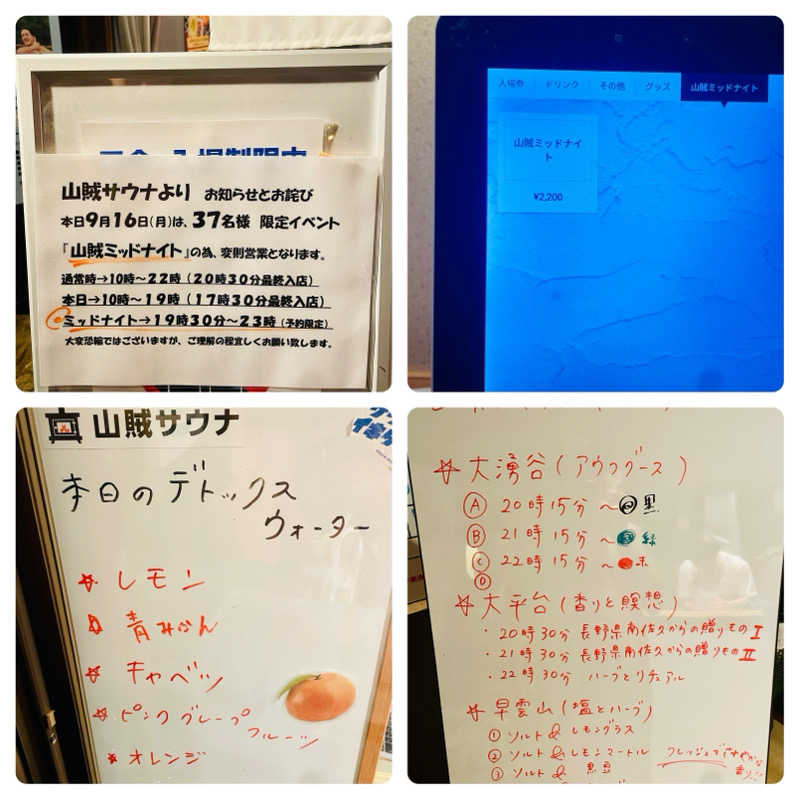 山賊サウナより お知らせとお詫び
本日9月16日(月)は、37名様 限定イベント
『山賊ミッドナイト』の為、変則営業となります。
通常時→10時~22時(20時30分最終入店)
本日→10時~19時(17時30分最終入店)
ミッドナイト→19時30分~23時(予約限定)
大変恐縮ではございますが、ご理解の程宜しくお願い致します。
入場券 ドリンク その他 グッズ 山賊ミッドナイト
山賊ミッドナイ
ト
¥2,200
山賊サウナ
本日のデトックス
ウォーター
☆レモン
☆青みかん
☆キャベツ
☆ピンクグレープ
フルーツ
☆オレンジ
☆大湧谷(アウフグース)
Ⓐ 20時15分~ 黒
Ⓑ 21時15分~ 緑
Ⓒ 22時15分~ 赤
Ⓓ
☆大平台(香りと瞑想)
・20時30分 長野県南佐久からの贈りものⅠ
・21時30分 長野県南佐久からの贈りものⅡ
・22時30分 ハーブとリチュアル
☆早雲山(塩とハーブ)
① ソルト&レモングラス
② ソルト&レモンマートル
③ ソルト& 黒豆